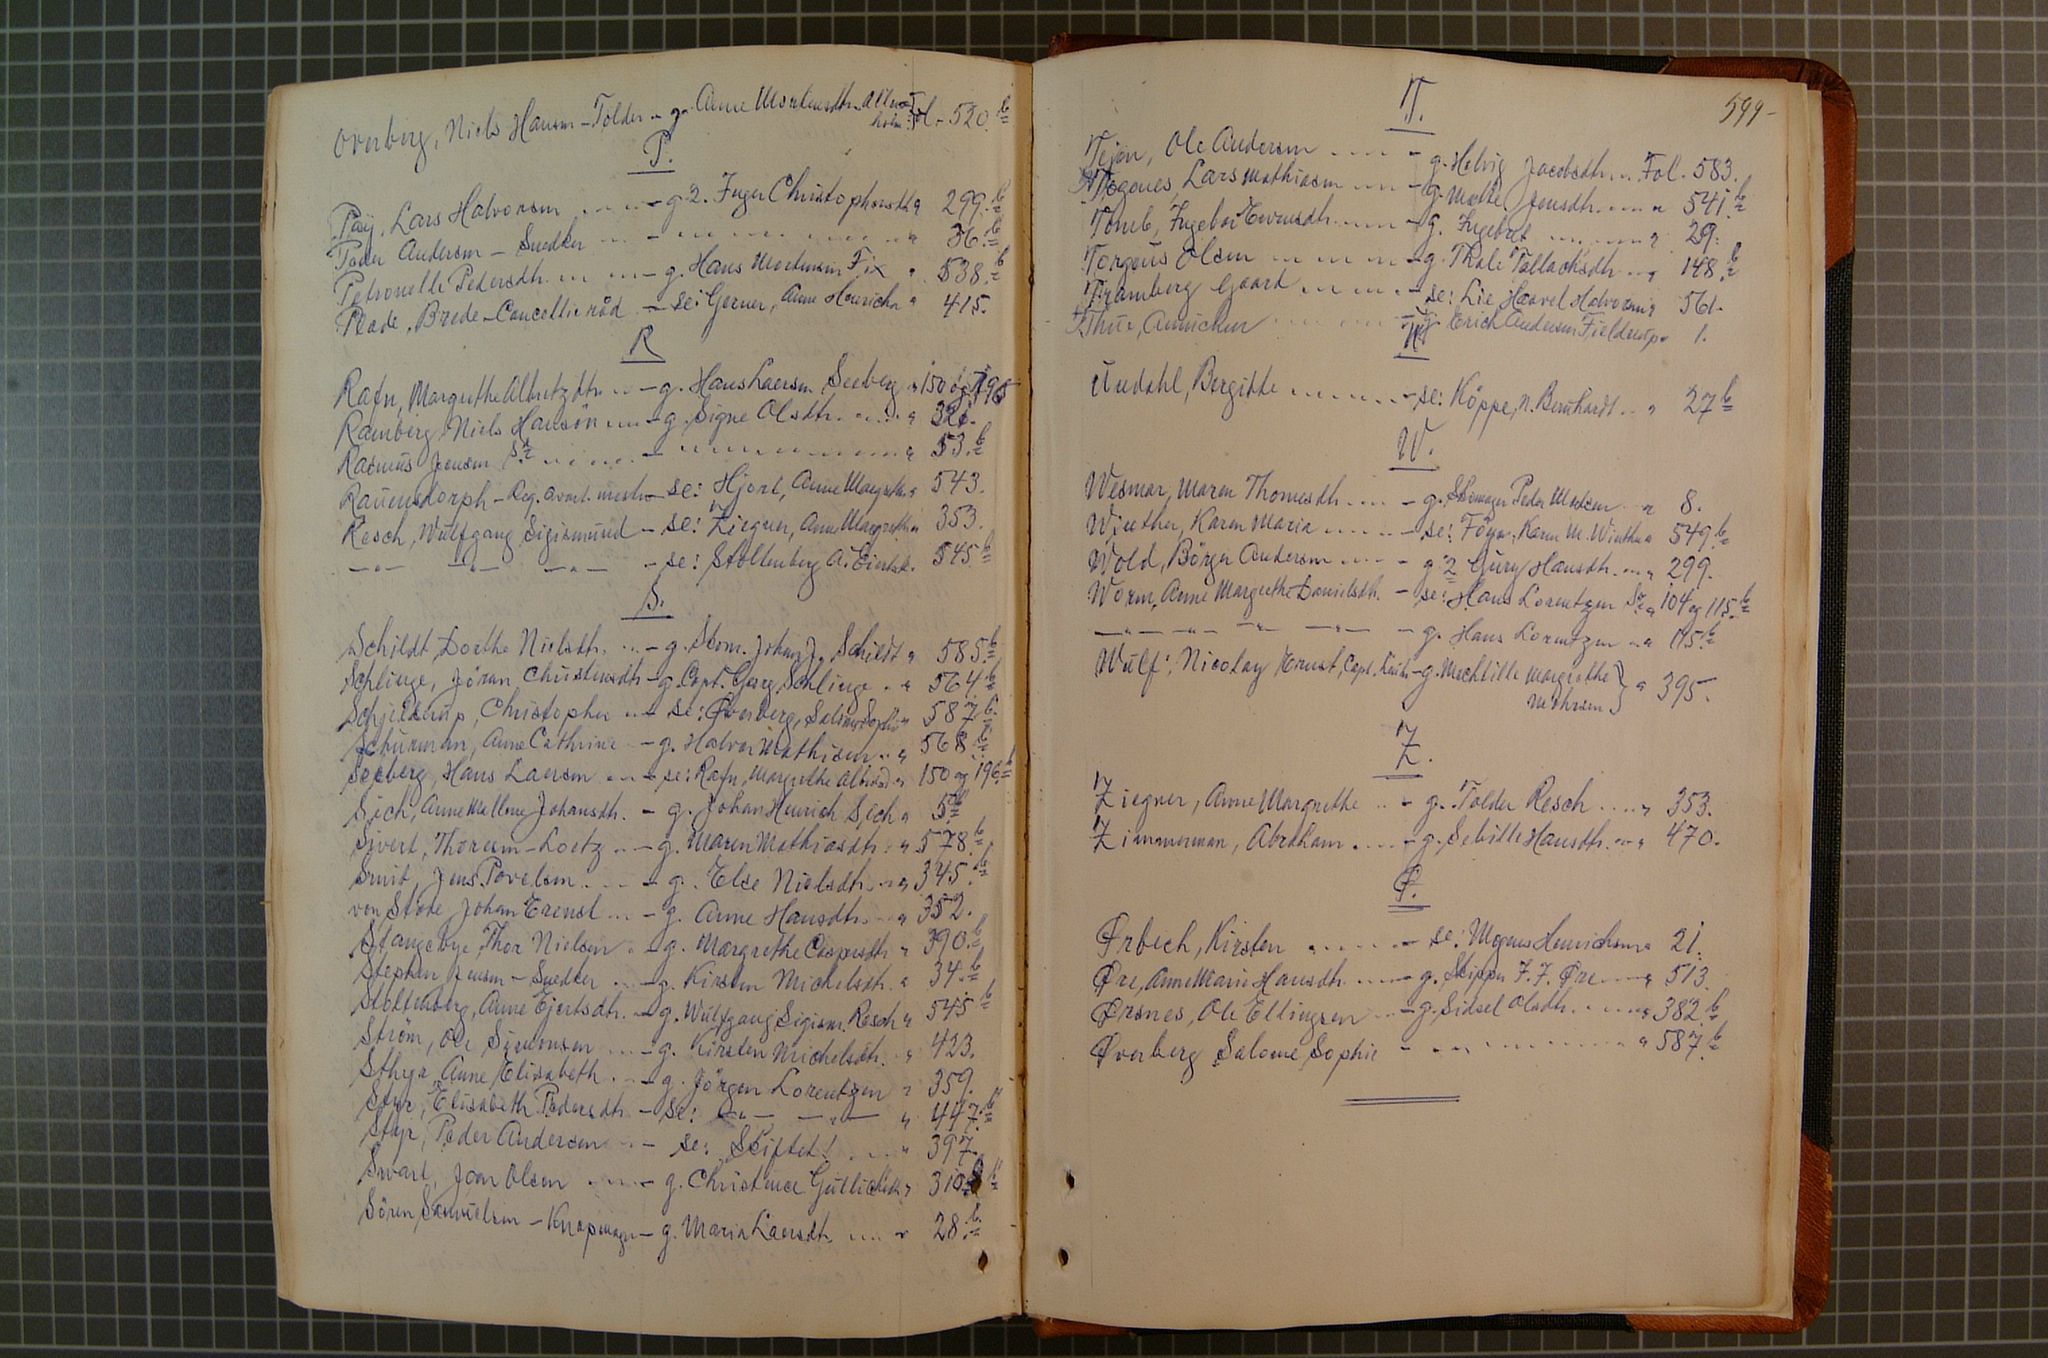 Overberg, Niels Hansen - Tolder - g. Anne Mortensdtr. Alm-
holm Fol - 520 b
P.
Pay, Lars Halvorsen - g 2. Inger Christophersdtr " 299. b
Peder Andersen - Snedker - " 36. b
Petronelle Pedersdtr. - g. Hans Mortensen Fix " 538. b
Plade, Brede - Cancelliråd - se: Gerner, Anne Henrichs " 415.
R
Rafn, Margrethe Albretzdtr. - g. Hans Laersen Seeberg " 150 og 196
Ramberg, Niels Hansön - g. Signe Olsdtr. " 326.
Rasmus Jensen Sr. - " 53. b
Rauensdorph - Reg. qvart. mester - se: Hjort, Anne Margrethe " 543.
Resch, Wulfgang Sigismund - se: Ziegner, Anne Margrethe " 353.
- " - - " - - " - - se: Stoltenberg A. Eiertsd. 545. b
S.
Schildt Dorthe Nielsdtr. - g. Skom. Johan J. Schildt " 585. b
Schlinge, Jöran Christensdtr - g. Capt. Georg Schlinge " 564. b
Schjelderup, Christopher - se: Øverberg, Salome Sophie " 587. b
Schurman, Anne Cathrine - g. Halvor Mathisen " 568. b
Seeberg, Hans Laersen - se: Rafn, Margrethe Albretzd " 150 og 196. b
Sich, Anne Mallene Johansdtr. - g. Johan Henrich Sich " 5. b
Sivert, Thoresen - Loetz - g. Maren Mathiasdtr " 578. b
Smit, Jens Povelsen - g. Else Nielsdtr. " 345. b
von Stade Johan Ernst - g. Anne Hansdtr. " 352.
Stangebye, Thor Nielsen - g. Margrethe Caspersdtr " 390. b
Stephen Jensen - Snedker - g. Kirsten Michelsdtr. " 34. b
Stoltenberg, Anne Ejertsdtr. - g. Wulfgang Sigism. Resch " 545 b
Ström, Ole Simonsen - g. Kirsten Michelsdtr. " 423.
Sthyr, Anne Elisabeth - g. Jörgen Lorentzen " 359.
Styr, Elisabeth Pedersdtr. - se: - " - - " - " 447. b
Styr, Peder Andersen - se: Skiftet! " 397.
Swart, Joen Olsen - g. Christence Gulichsdtr " 310 b
Sören Samuelsen - Knapmager - g. Maria Laersdtr. " 28. b
599 -
T.
Tejen, Ole Andersen - g. Helvig Jacobsdtr. Fol. 583.
Tegenes Lars Mathiasen - g. Mette Jensdtr. " 541. b
Tomb, Ingebor Evensdtr. - g. Ingebret " 29.
Torgeus Olsen - g. Thale Tallachsdtr " 148. b
Tramberg Gaard - se: Lie Haavel Halvorsen " 561.
Thue, Annichen - g. Erich Andersen Fieldrup " 1.
U
Undahl, Bergitte - se: Köppe, N. Bernhardt " 27 b
W.
Wesmar, Maren Thomesdtr. - g. Skomager Peder Madsen " 8.
Winther, Karen Maria - se: Föyn, Karen M. Winther " 549. b
Wold, Börger Andersen - g. 2 Gury Hansdtr. " 299.
Worm, Anne Margrethe Danielsdtr. - se: Hans Lorentzen Sr. " 104 og 115. b
- " - - " - - " - - " - - g. Hans Lorentzen " 115. b
Wulf: Nicolay Ernst, Capt. Leutn - g. Mechtille Margrethe
Mohrsen } " 395.
Z.
Ziegner, Anne Margrethe - g. Tolder Resch " 353.
Zimmerman, Abraham - g. Sebille Hansdtr. " 470.
Ø.
Ørbech, Kirsten - se: Mogens Henrichsen " 21.
Øre, Anne Marie Hansdtr. - g. Skipper J. J. Øre " 513
Ørsnes, Ole Ellingsen - g. Sidsel Olsdtr. " 382. b
Øverberg Salome Sophie - " 587. b